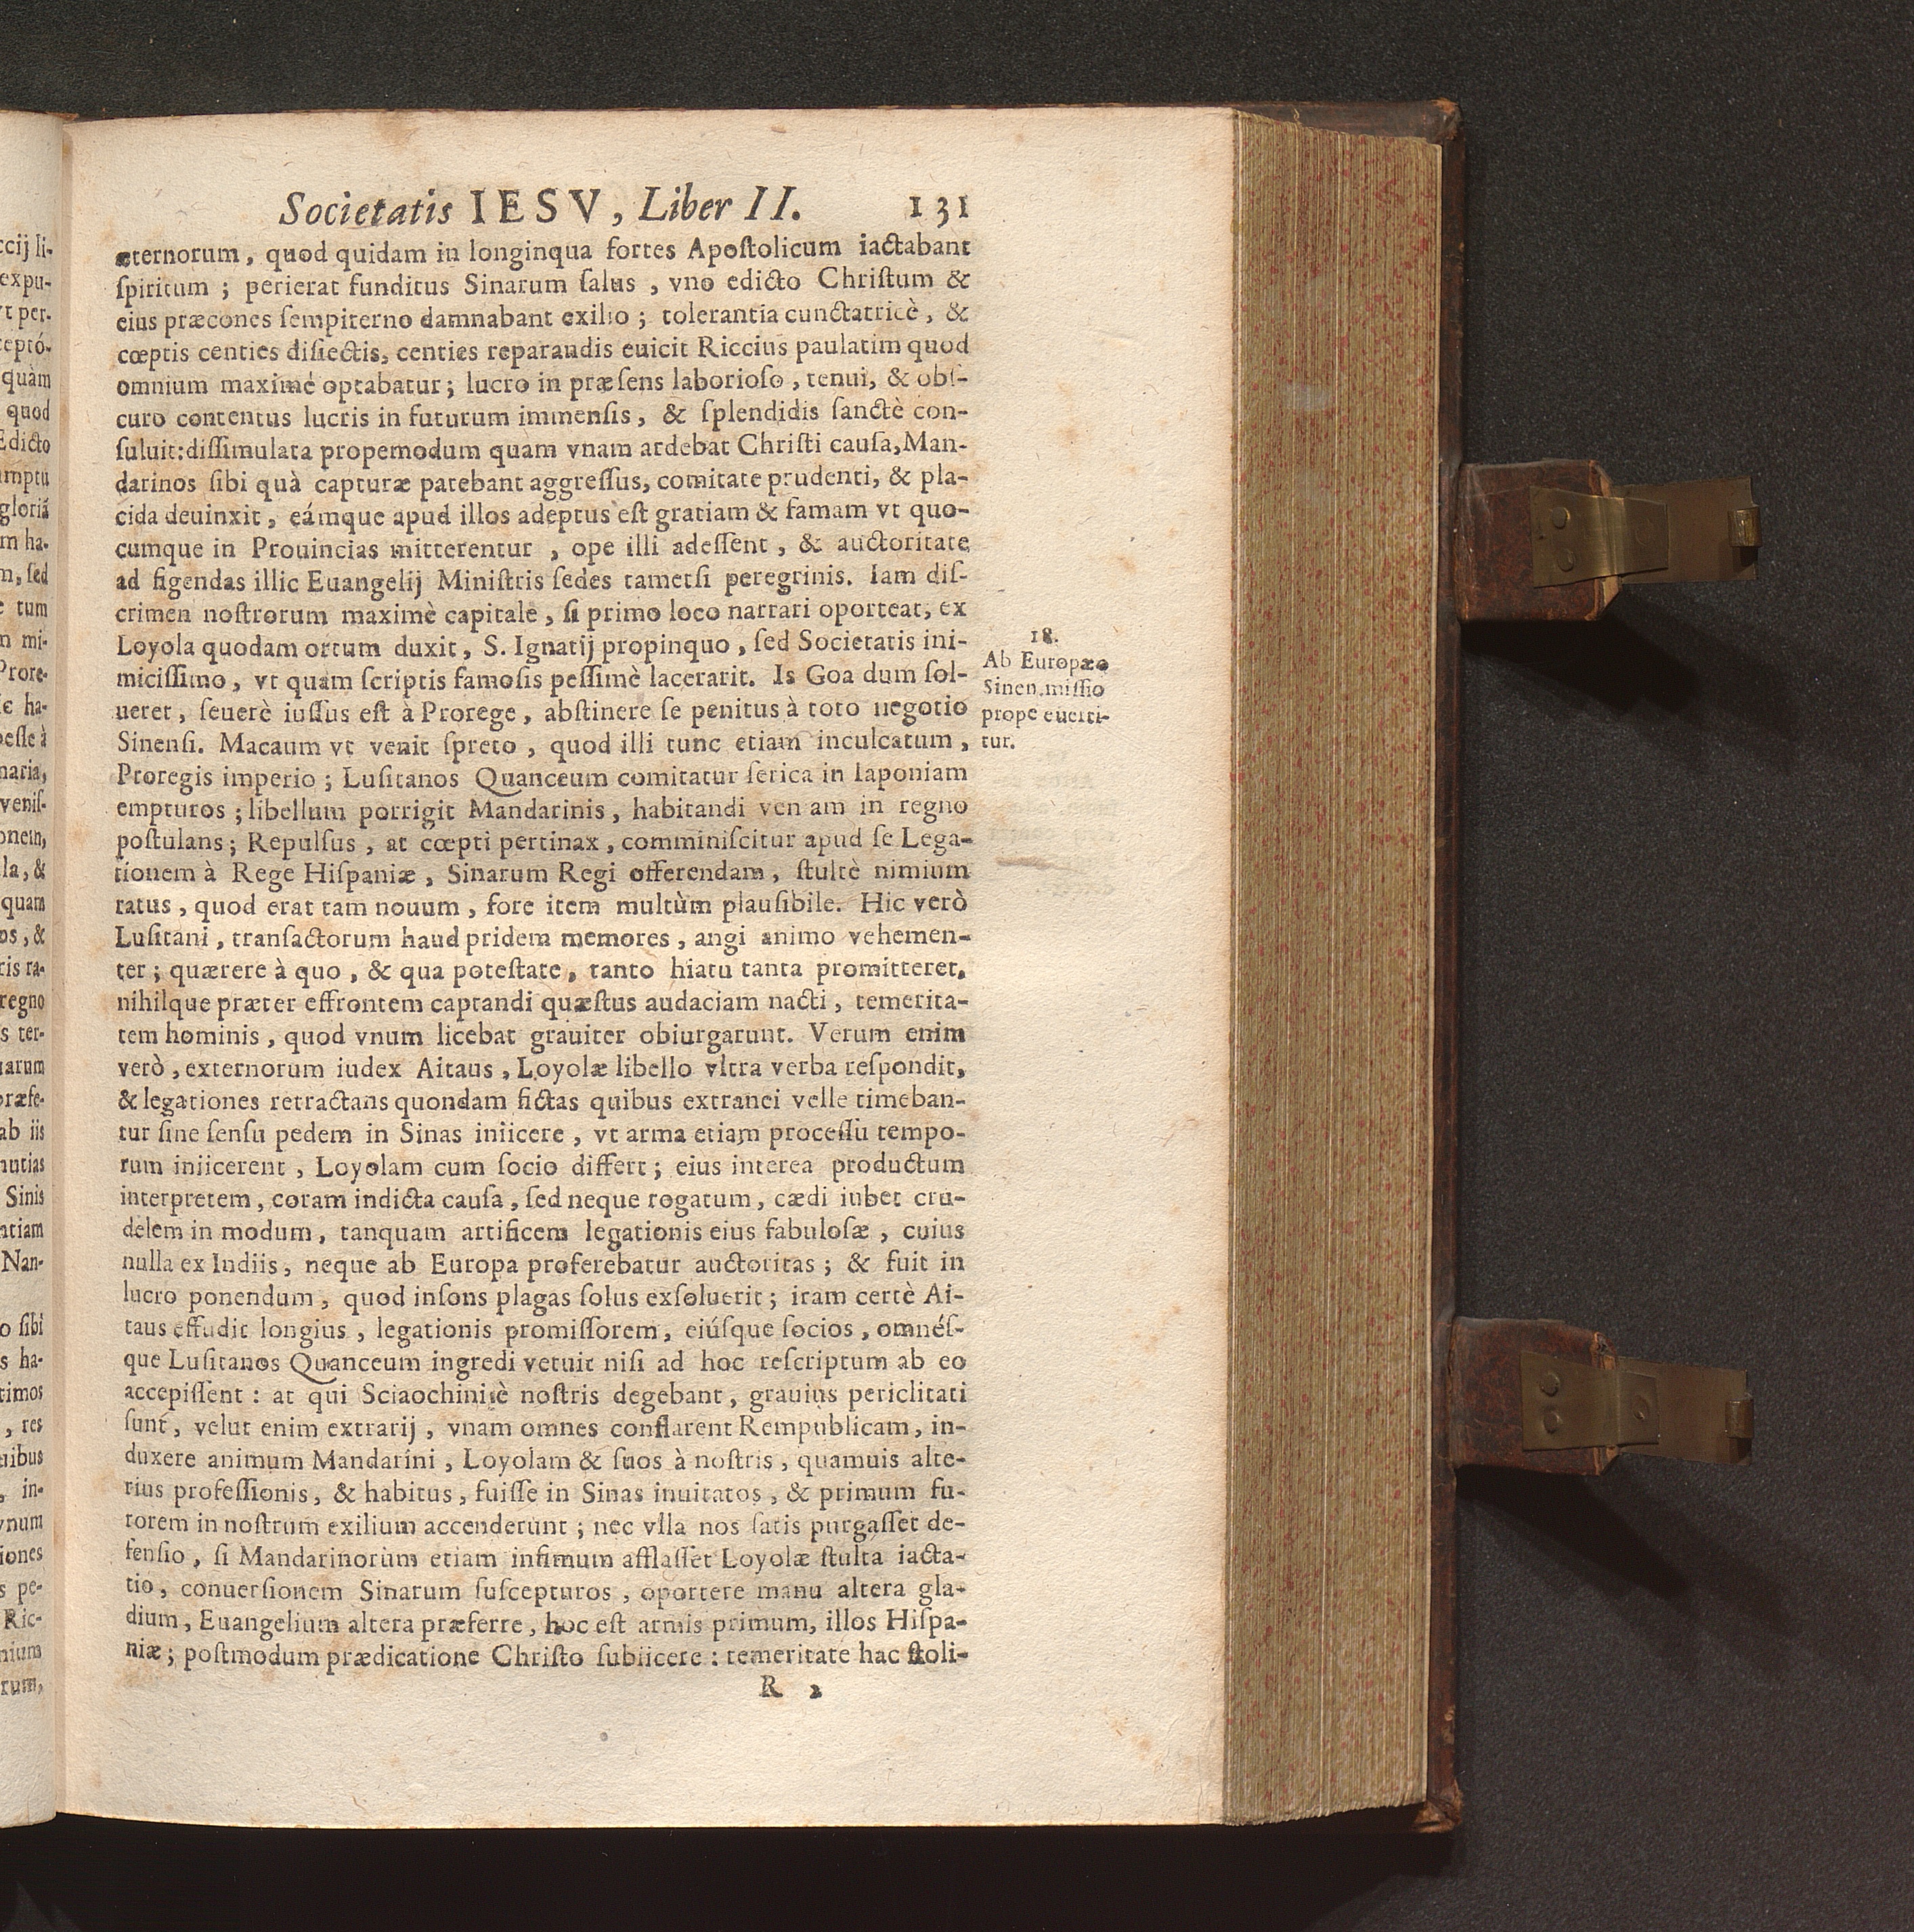 Societatis IESV, Liber II. 131
æternorum, quod quidam in longinqua fortes Apoſtolicum iactabant
ſpiritum ; perierat funditus Sinarum ſalus , vno edicto Chriſtum &
eius præcones ſempiterno damnabant exilio ; tolerantia cunctatricè, &
cœptis centies diſiectis, centies reparandis euicit Riccius paulatim quod
omnium maximè optabatur ; lucro in præſens laborioſo , tenui, & obſ-
curo contentus lucris in futurum immenſis, & ſplendidis ſanctè con-
ſuluit:diſſimulata propemodum quam vnam ardebat Chriſti cauſa,Man-
darinos ſibi quà capturæ patebant aggreſſus, comitate prudenti, & pla-
cida deuinxit, eámque apud illos adeptus eſt gratiam & famam vt quo-
cumque in Prouincias mitterentur , ope illi adeſſent , & auctoritate
ad figendas illic Euangelij Miniſtris ſedes tametſi peregrinis. Iam diſ-
crimen noſtrorum maximè capitale , ſi primo loco narrari oporteat, ex
Loyola quodam ortum duxit, S. Ignatij propinquo , ſed Societatis ini-
miciſſimo , vt quam ſcriptis famoſis peſſimè lacerarit. Is Goa dum ſol-
ueret , ſeuerè iuſſus eſt à Prorege , abſtinere ſe penitus à toto negotio
Sinenſi. Macaum vt venit ſpreto , quod illi tunc etiam inculcatum ,
Proregis imperio ; Luſitanos Quanceum comitatur ſerica in Iaponiam
empturos ; libellum porrigit Mandarinis , habitandi ven am in regno
poſtulans ; Repulſus , at cœpti pertinax , comminiſcitur apud ſe Lega-
tionem à Rege Hiſpaniæ , Sinarum Regi offerendam , ſtultè nimium
ratus , quod erat tam nouum , fore item multùm plauſibile. Hic verò
Luſitani , tranſactorum haud pridem memores , angi animo vehemen-
ter ; quærere à quo , & qua poteſtate , tanto hiatu tanta promitteret,
nihilque præter effrontem captandi quæſtus audaciam nacti , temerita-
tem hominis , quod vnum licebat grauiter obiurgarunt. Verum enim
verò , externorum iudex Aitaus , Loyolæ libello vltra verba reſpondit,
& legationes retractans quondam fictas quibus extranei velle timeban-
tur ſine ſenſu pedem in Sinas iniicere , vt arma etiam proceſſu tempo-
rum iniicerent , Loyolam cum ſocio differt ; eius interea productum
interpretem , coram indicta cauſa , ſed neque rogatum , cædi iubet cru-
delem in modum , tanquam artificem legationis eius fabuloſæ , cuius
nulla ex Indiis , neque ab Europa proferebatur auctoritas ; & fuit in
lucro ponendum , quod inſons plagas ſolus exſoluerit ; iram certè Ai-
taus effudit longius , legationis promiſſorem , eiúſque ſocios , omnéſ-
que Luſitanos Quanceum ingredi vetuit niſi ad hoc reſcriptum ab eo
accepiſſent : at qui Sciaochini è noſtris degebant , grauius periclitati
ſunt , velut enim extrarij , vnam omnes conflarent Rempublicam , in-
duxere animum Mandarini , Loyolam & ſuos à noſtris , quamuis alte-
rius profeſſionis , & habitus , fuiſſe in Sinas inuitatos , & primum fu-
rorem in noſtrum exilium accenderunt ; nec vlla nos ſatis purgaſſet de-
fenſio , ſi Mandarinorum etiam infimum afflaſſet Loyolæ ſtulta iacta-
tio , conuerſionem Sinarum ſuſcepturos , oportere manu altera gla-
dium , Euangelium altera præferre , hoc eſt armis primum, illos Hiſpa-
niæ ; poſtmodum prædicatione Chriſto ſubiicere : temeritate hac ſtoli-
R 2
18.
Ab Europæo
Sinen.miſſio
prope euerti-
tur.
ccij li-
expu-
vt per-
ceptó-
quàm
quod
Edicto
gloriã
m ha-
m, ſed
tum
mi-
Prore-
ha-
naria,
la, &
quam
os, &
ris ra-
regno
s ter-
ab iis
Sinis
Nan-
o ſibi
s ha-
, res
, in-
vnum
s pe-
Ric-
rum,